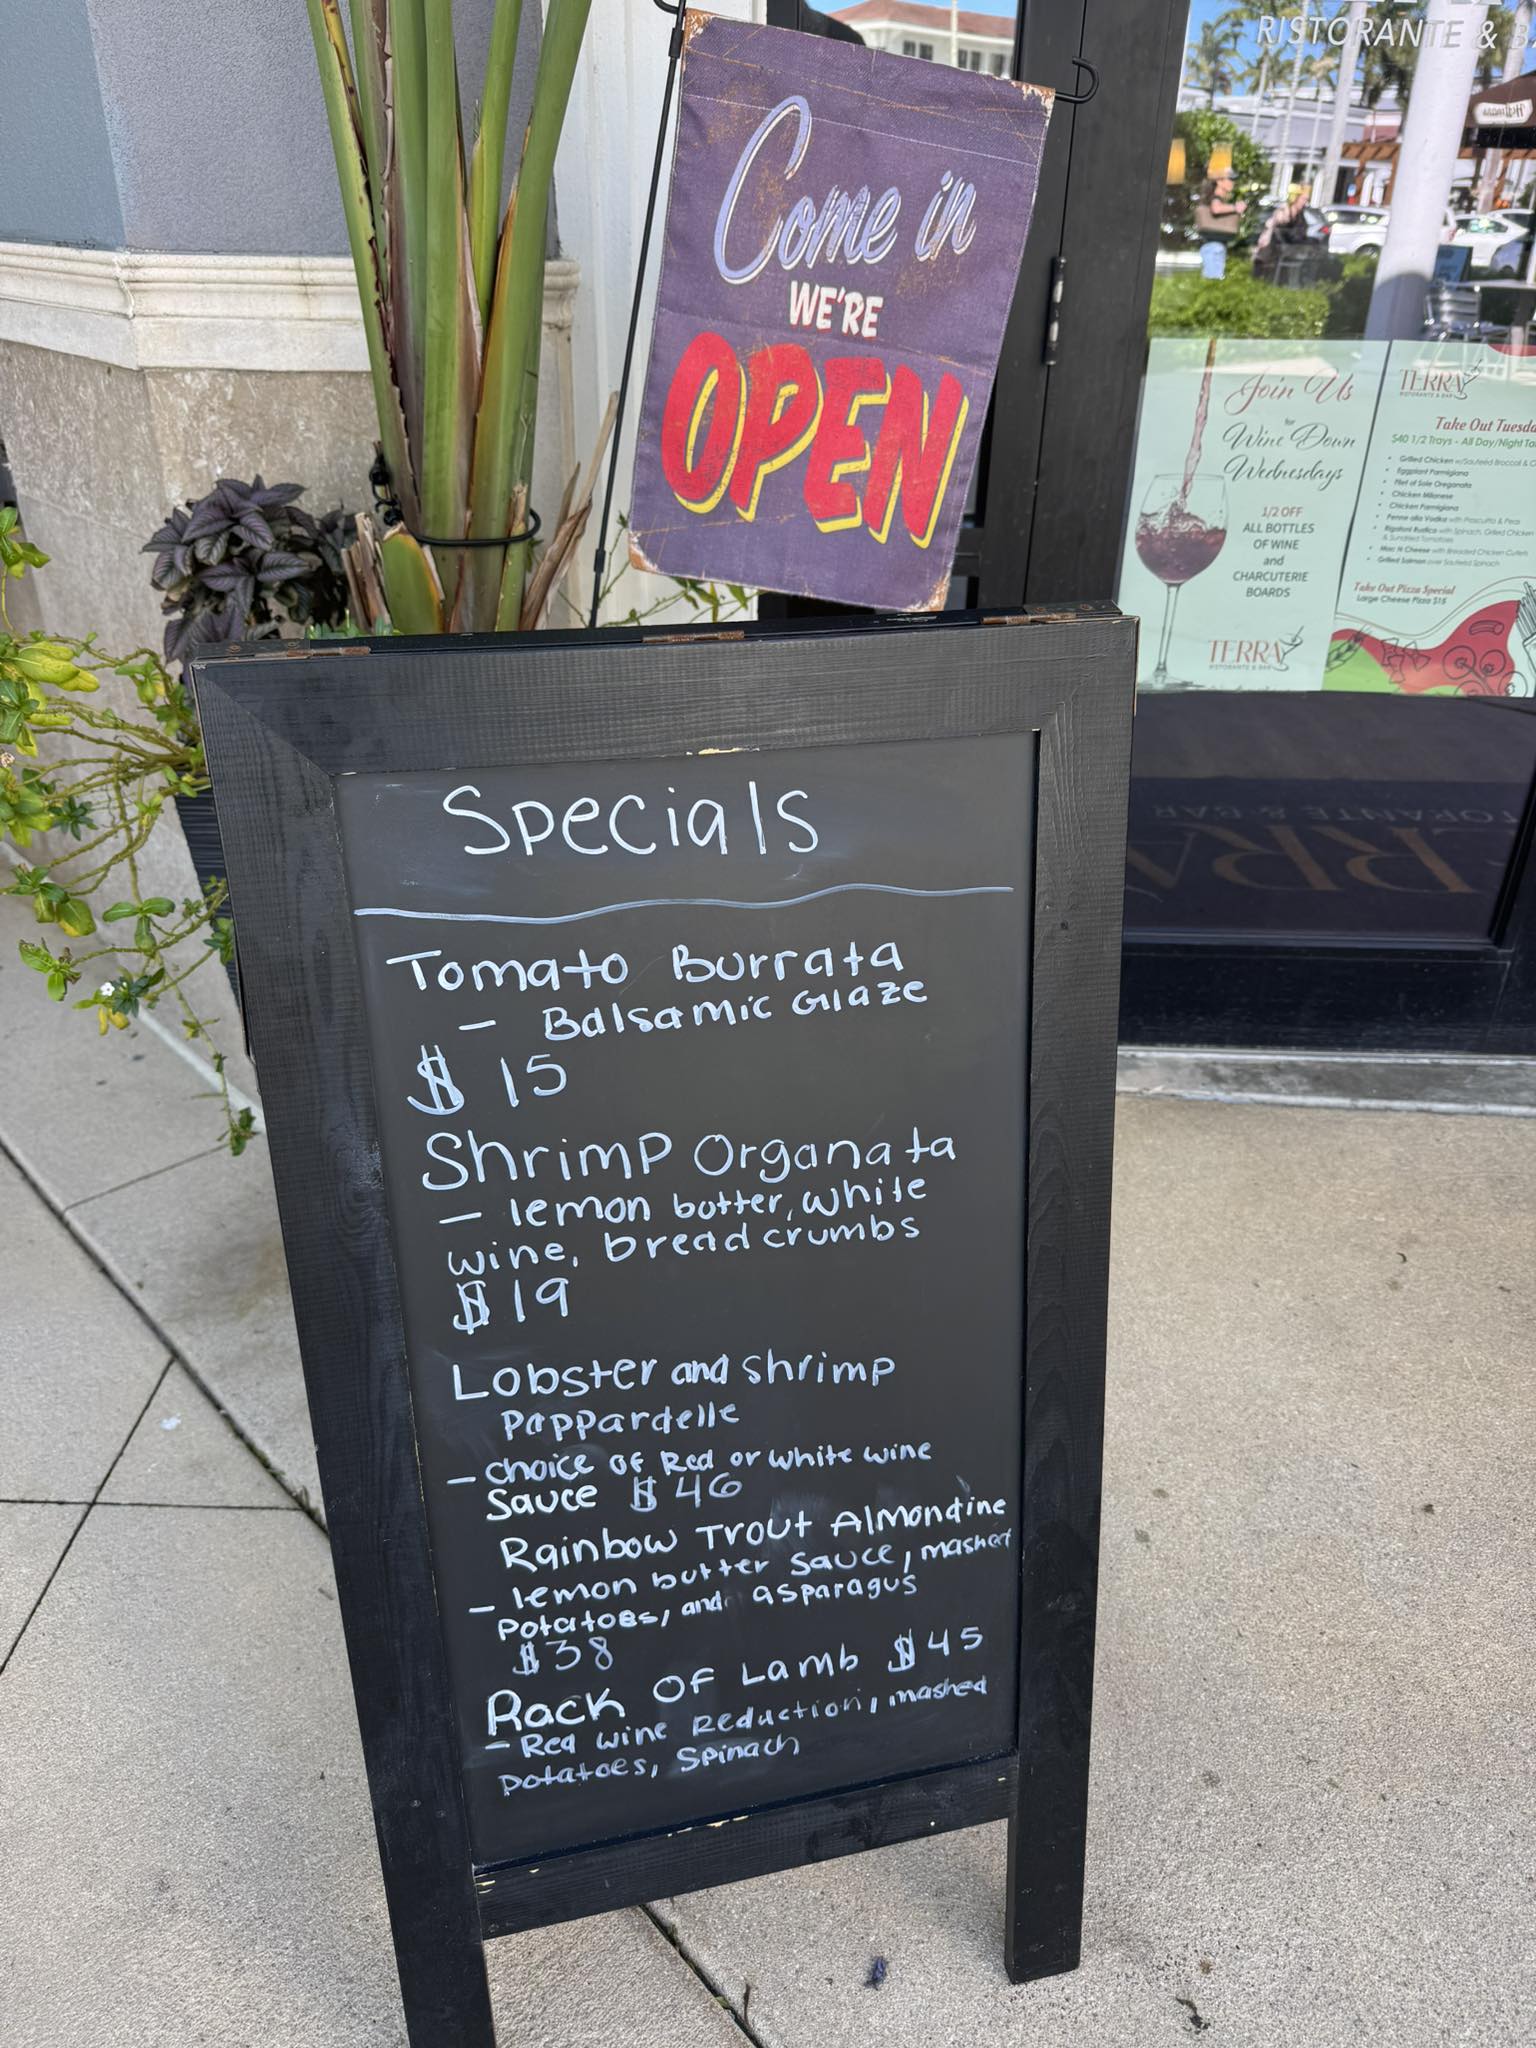 RISTORANTE &
Come in
WE'RE
OPEN
Join Us
for
Wine Down
Wednesdays
1/2 OFF
ALL BOTTLES
OF WINE
and
CHARCUTERIE
BOARDS
TERRA
RISTORANTE & BAR
TERRA
RISTORANTE & BAR
Take Out
$40 1/2 Trays - All Day/Night
• Grilled Chicken w/Sauteed Broccoli &
• Eggplant Parmigiana
• Filet of Sole Oreganata
• Chicken Milanese
• Chicken Parmigiana
• Penne alla Vodka with Prosciutto & Peas
• Rigatoni Rustica with Spinach, Grilled Chicken
& Sundried Tomatoes
• Mac N Cheese with Breaded Chicken Cutlets
• Grilled Salmon over Sauteed Spinach
Take Out Pizza Special
Large Cheese Pizza $15
Specials
Tomato Burrata
- Balsamic Glaze
$ 15
Shrimp Organata
- lemon butter, white
wine, bread crumbs
$19
Lobster and shrimp
Pappardelle
- choice of Red or white wine
Sauce $46
Rainbow Trout Almondine
- lemon butter sauce, mashed
potatoes, and asparagus
$38
Rack of Lamb $45
- Red wine Reduction, mashed
potatoes, spinach